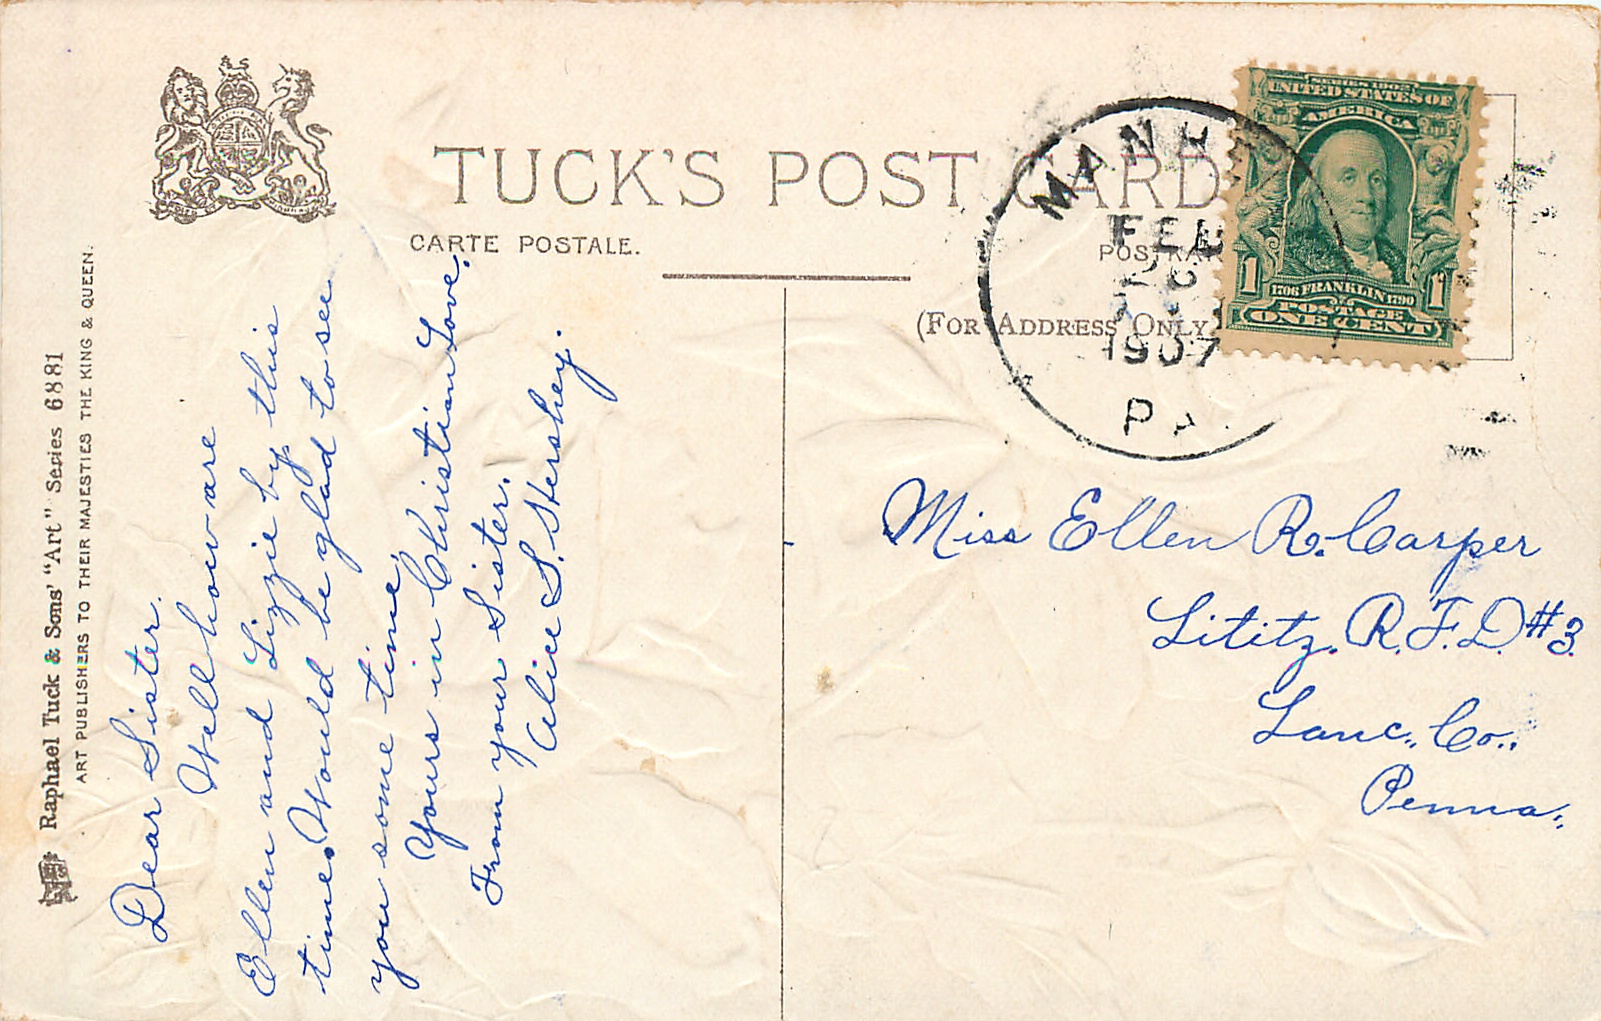 Raphael Tuck & Sons' "Art" Series 6881
ART PUBLISHERS TO THEIR MAJESTIES THE KING & QUEEN.
TUCK'S POST CARD
CARTE POSTALE.
(FOR ADDRESS ONLY
MANH
FEB
1907
PA.
SERIES 1902
UNITED STATES OF
AMERICA
1706 FRANKLIN 1790
1 1
POSTAGE
ONE CENT
Dear Sister.
Well how are
Ellen and Lizzie by this
time. Would be glad to see
you some time.
Yours in Christian Love.
From your Sister.
Alice S. Hershey.
Miss Ellen R. Carper
Lititz. R.F.D. #3.
Lanc., Co.,
Penna.,